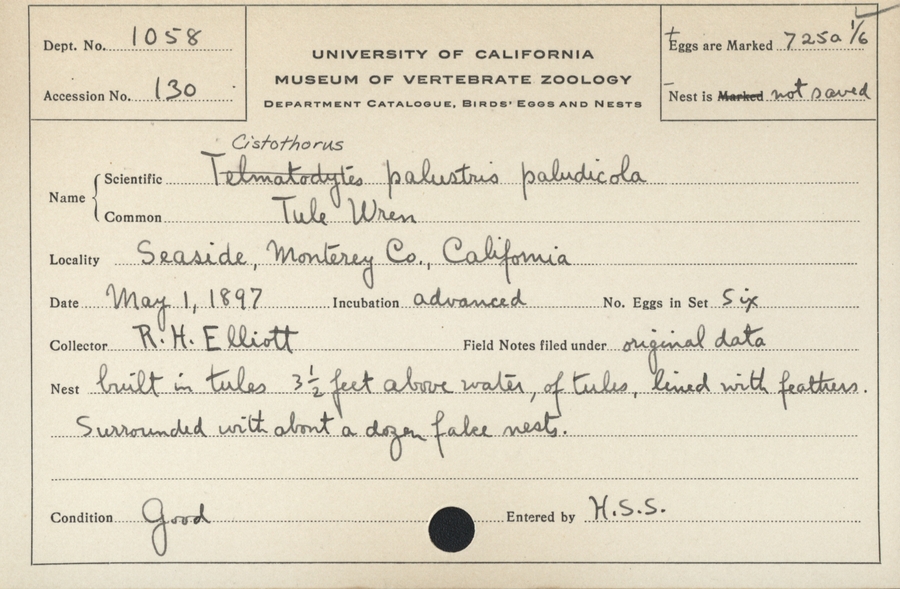 Dept. No. 1058
Accession No. 130
UNIVERSITY OF CALIFORNIA
MUSEUM OF VERTEBRATE ZOOLOGY
DEPARTMENT CATALOGUE, BIRDS' EGGS AND NESTS
Eggs are Marked 725a 1/6
Nest is Marked not saved
Cistothorus
Name Scientific Telmatodytes palustris paludicola
Common Tule Wren
Locality Seaside, Monterey Co., California
Date May 1, 1897 Incubation advanced No. Eggs in Set Six
Collector R. H. Elliott Field Notes filed under original data
Nest built in tules 3 1/2 feet above water, of tules, lined with feathers.
Surrounded with about a dozen fake nests.
Condition Good Entered by H.S.S.